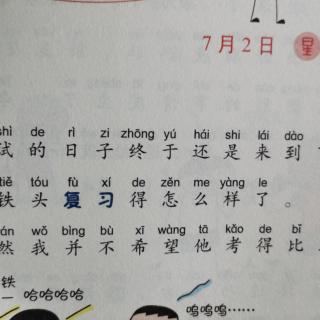 7月2日 星
shì de rì zi zhōng yú hái shi lái dào
试的日子终于还是来到
tiě tóu fù xí de zěn me yàng le
铁头复习得怎么样了。
rán wǒ bìng bù xī wàng tā kǎo de bǐ
然我并不希望他考得比
铁
一 哈哈哈哈
呜呜呜……